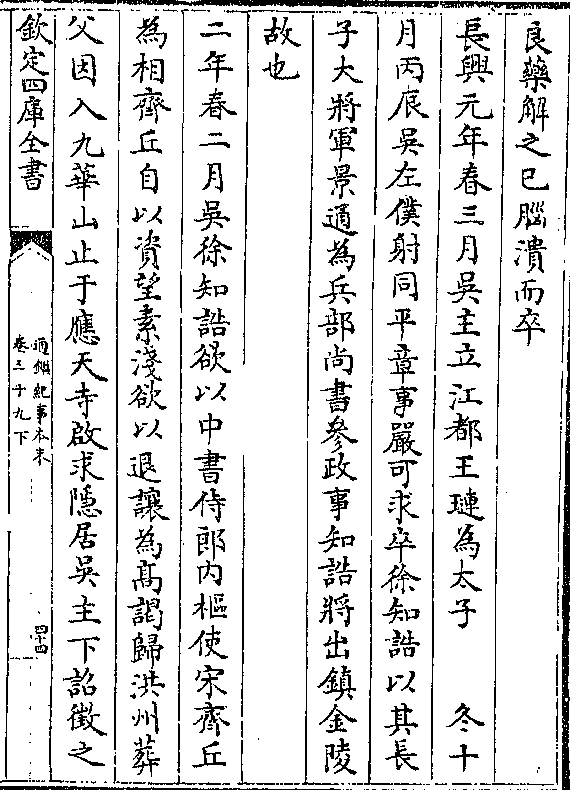 良藥解之已腦潰而卒
長興元年春三月吳主立江都王璉為太子　冬十
月丙辰吳左僕射同平章事嚴可求卒徐知誥以其長
子大將軍景通為兵部尚書參政事知誥將出鎮金陵
故也
二年春二月吳徐知誥欲以中書侍郎內樞使宋齊丘
為相齊丘自以資望素淺欲以退讓為高謁歸洪州葬
父因入九華山止于應天寺啟求隱居吳主下詔徵之
欽定四庫全書
通鑑紀事本末
卷三十九下
四十四